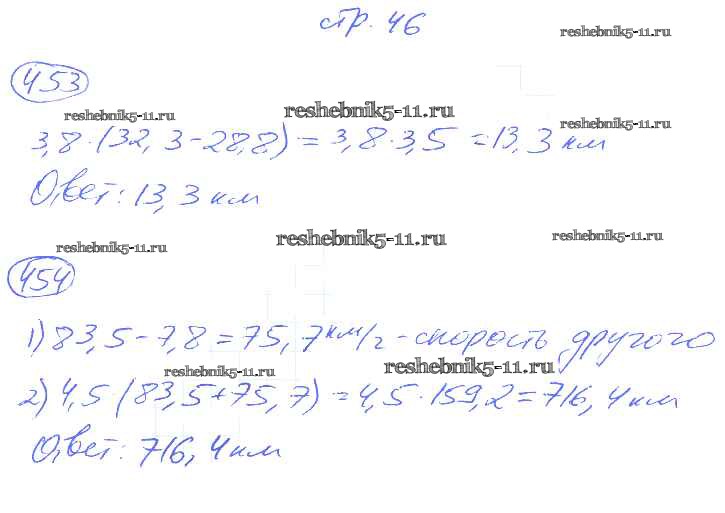 стр. 46
reshebnik5-11.ru
453
reshebnik5-11.ru reshebnik5-11.ru reshebnik5-11.ru
3,8·(32,3-28,8)=3,8·3,5=13,3км
Ответ: 13,3км
reshebnik5-11.ru reshebnik5-11.ru reshebnik5-11.ru
454
1) 83,5-7,8=75,7км/г-скорость другого
reshebnik5-11.ru reshebnik5-11.ru
2) 4,5(83,5+75,7)=4,5·159,2=716,4км
Ответ: 716,4км